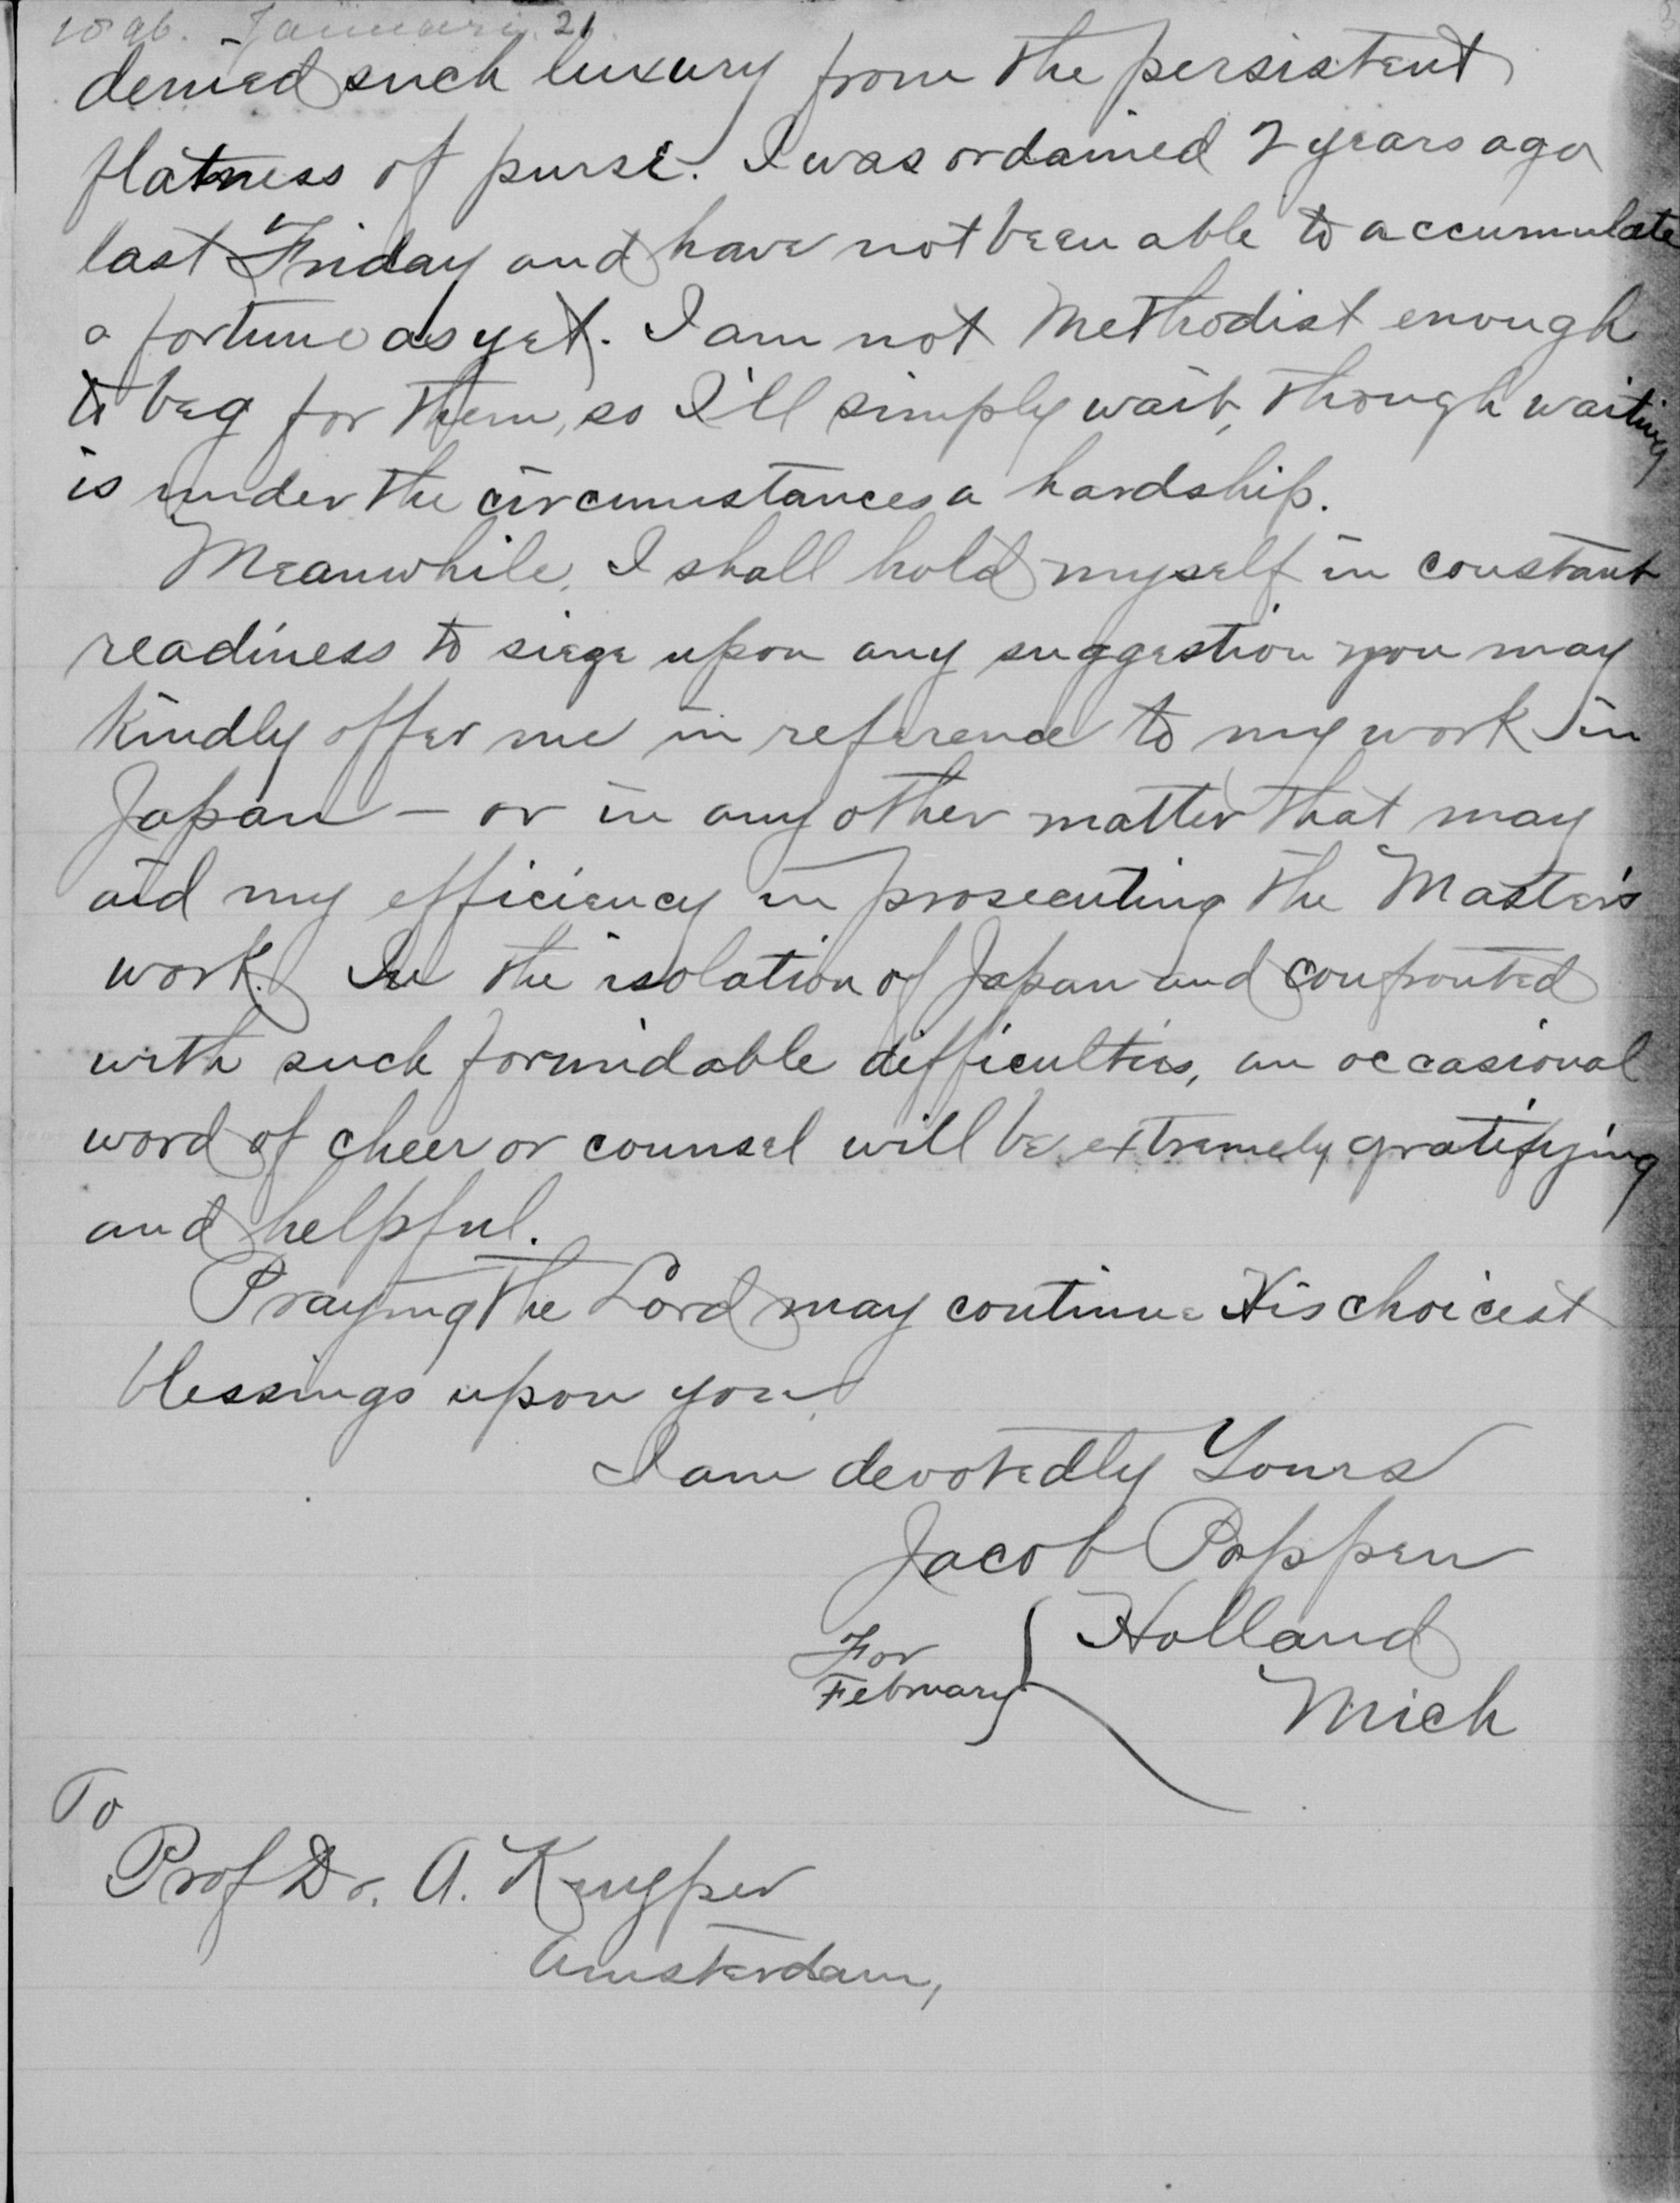 1896. Januari 21.
denied such luxury from the persistent
flatness of purse. I was ordained 2 years ago
last Friday and have not been able to accumulate
a fortune as yet. I am not Methodist enough
to beg for them, so I'll simply wait, though waiting
is under the circumstances a hardship.
Meanwhile, I shall hold myself in constant
readiness to siege upon any suggestion you may
kindly offer me in reference to my work in
Japan - or in any other matter that may
aid my efficiency in prosecuting the Master's
work. In the isolation of Japan and confronted
with such formidable difficulties, an occasional
word of cheer or counsel will be extremely gratifying
and helpful.
Praying the Lord may continue His choicest
blessings upon you
I am devotedly Yours
Jacob Poppen
For February { Holland
Mich
To
Prof Dr. A. Kuyper
Amsterdam,